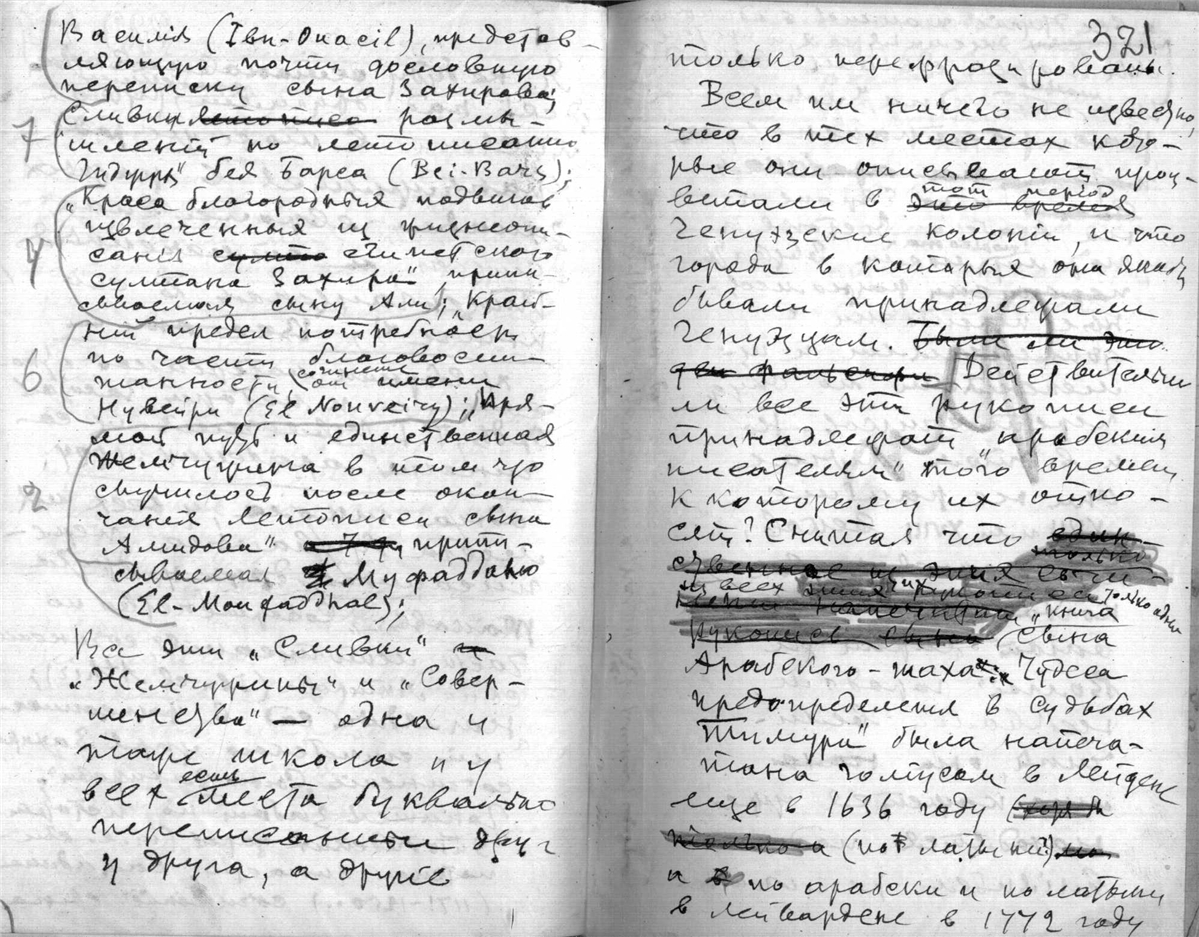 Василія (Ibn-Ouacil), представ-
ляющую почти дословную
переписку сына Захирова;
Сливки размы-
шленій по летописанію
бея Барса (Bei-Bars);
„Краса благородныя подвигов
извлеченныя из жизнеопи-
санія египетского
султана Захира“, припи-
сываемая сыну Али; „Край-
ній предел потребности
по части благовоспи-
танности, сочинение
от имени
Нувейри (El Nouveiry); „Пря-
мой путь и единственная
Жемчужина в том что
случилось после окон-
чанія летописи сына
Амидова“ припи-
сываемая Муфаддалю
(El-Moufaddhal);
Все эти „Сливки“
„Жемчужины“ и „Совер-
шенства“ — одна и
таже школа и у
всех есть места буквально
переписанныи друг
у друга, а другіе
321
только перефразированы.
Всем им ничего не известно,
что в тех местах кото-
рые они описывают проц-
ветали в тот период
Генуэзские колоніи, и что
города в которыя они
бывали принадлежали
Генуэзцам. Были ли эти
Действительно
ли все эти рукописи
принадлежат арабским
писателям того времени
к которому их отно-
сят? Считая что
только
из всех этих рукописей только одна
„книга
сына
Арабского-шаха Чудеса
предопределенія в судьбах
Тимура“ была напеча-
тана голіусом в Лейдене
еще в 1636 году
(по латыни?)
а по арабски и по латыни
в Лейвардене в 1772 году